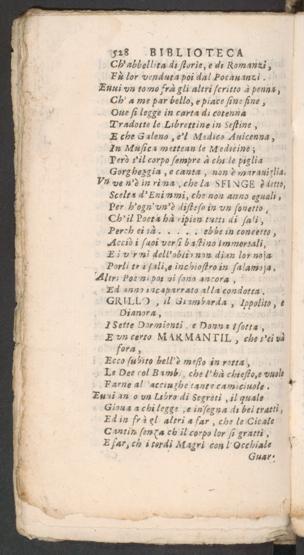 528 BIBLIOTECA
Ch'abbellita di storie, e de Romanzi,
Fù lor venduta poi dal Pocauanzi.
Euui vn tomo frà gli altri scritto à penna,
Ch' a me par bello, e piace sine fine,
Oue si legge in carta di cotenna
Tradotte le Librettine in Sestine,
E che Galeno, e'l Medico Auicenna,
In Musica mettean le Medecine;
Però s'il corpo sempre à chi le piglia
Gorgheggia, e canta, non è marauiglia.
Vn ve n'è in rima, che la SFINGE è detto,
Scelta d'Enimmi, che non anno eguali,
Per h'ogn'vn'è disteso in vn sonetto,
Ch'il Poeta hà ripien tutti di sali,
Perch ei sà ..... ebbe in concetto,
Acciò i suoi versi bastino immortali,
E i vermi dell'oblio non dian lor noja
Porli tra i sali, e inchiostro in salamoja.
Altri Poemi poi vi sono ancora,
Ed anno incaparrato alla condotta.
GRILLO, il Giambarda, Ippolito, e
Dianora,
I Sette Dormienti, e Donna Isotta,
E vn certo MARMANTIL, che s'ei và
fora,
Ecco subito bell'è messo in rotta,
Le Dee col Bamb., che l'hà chiesto, e vuole
Farne all'acciughe tante camiciuole.
Euui an o vn Libro di Segreti, il quale
Gioua a chi legge, e insegna di bei tratti,
Ed in frà gl altri a far, che le Cicale
Cantin senza ch il corpo lor si gratti,
E far, ch i tordi Magri con l'Occhiale
Guar-